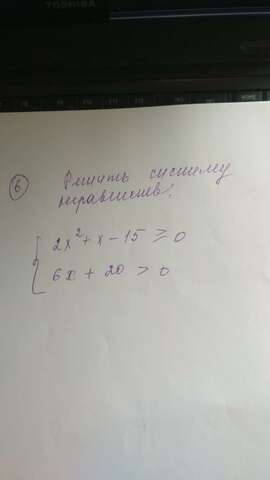 TOSHIBA
6 Решить систему
неравенств:
2x² + x - 15 ≥ 0
6x + 20 > 0